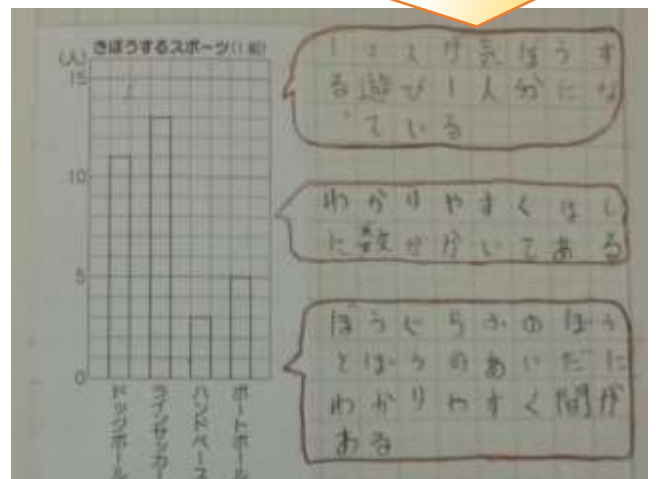 きぼうするスポーツ(1組)
(人)
15
10
5
0
ドッジボール
ラインサッカー
ハンドベース
ポートボール
1マスが気ぼうす
る遊び1人分にな
っている
わかりやすくはし
に数がかいてある
ぼうぐらふのぼう
とぼうのあいだに
わかりやすく間が
ある